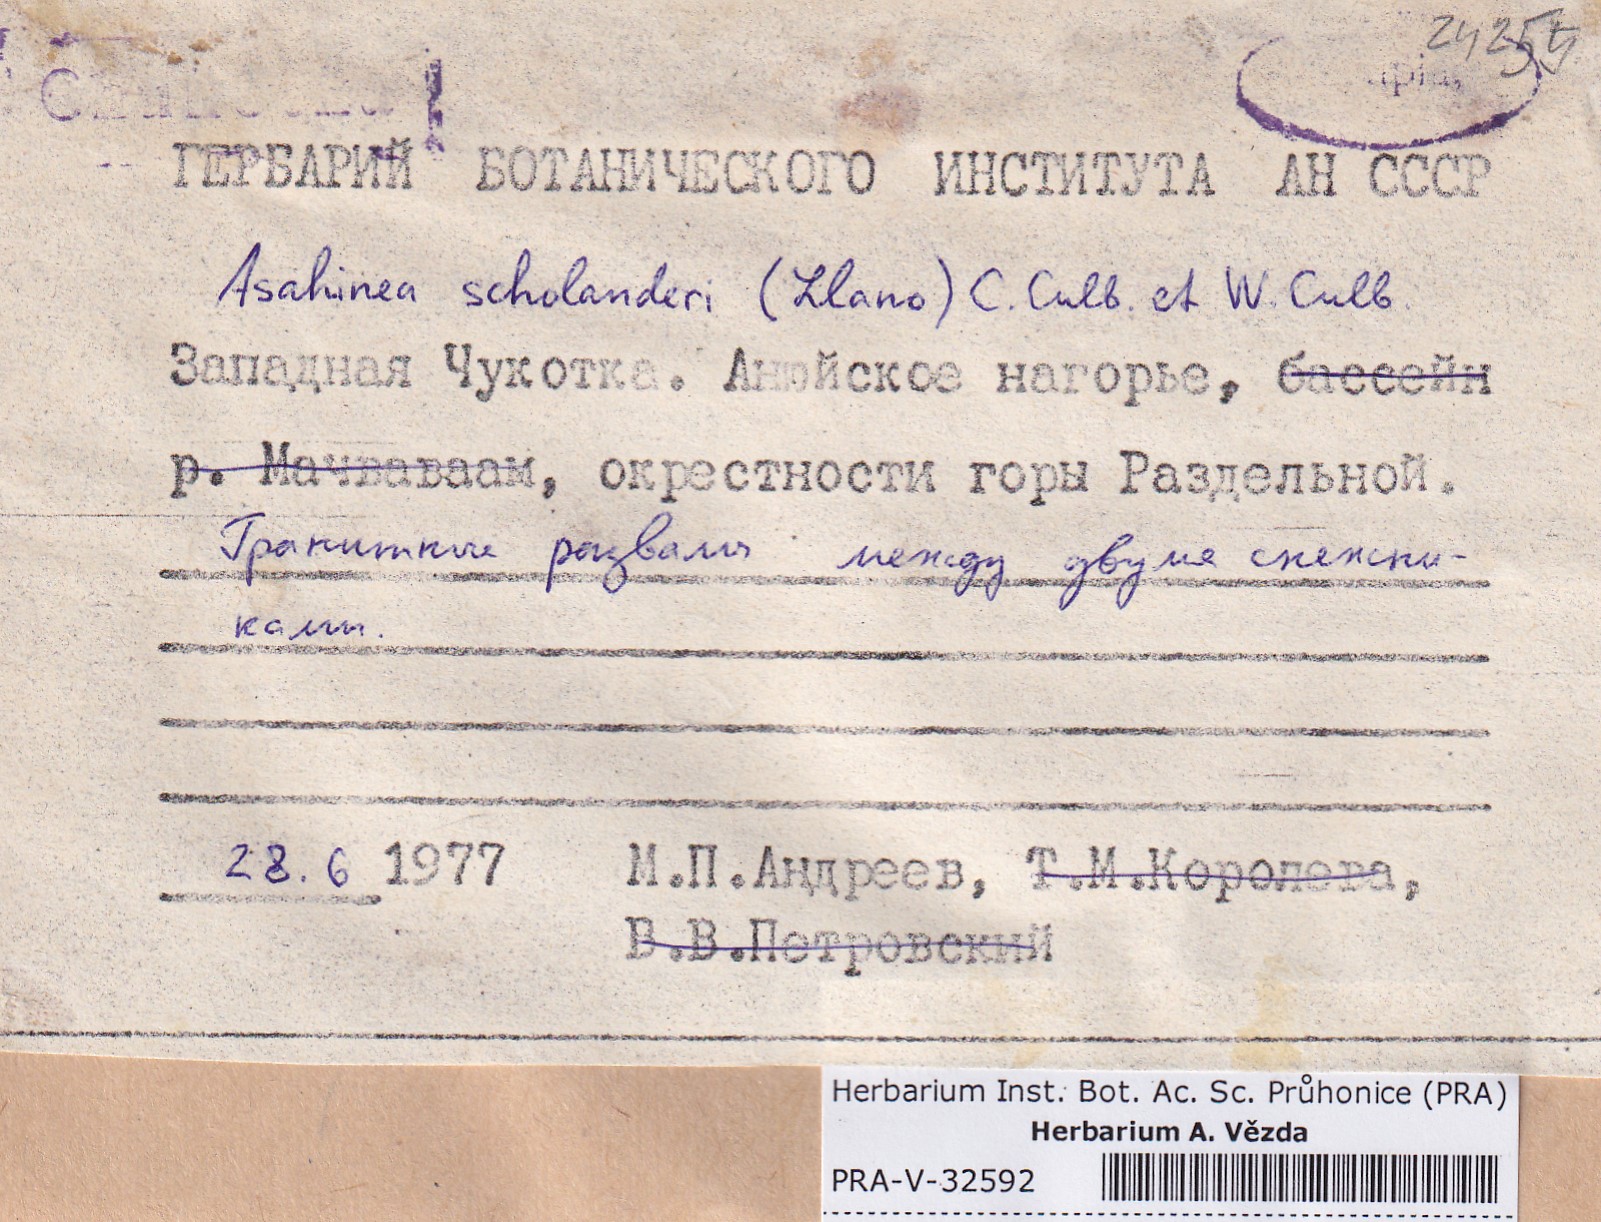 24254
ГЕРБАРИЙ БОТАНИЧЕСКОГО ИНСТИТУТА АН СССР
Asahinea scholanderi (Llano) C. Culb. et W. Culb.
Западная Чукотка. Анюйское нагорье, бассейн
р. Мачваваам, окрестности горы Раздельной.
Гранитные развалы между двумя снежни-
ками.
28.6 1977 М.П.Андреев, Т.М.Королева,
В.В.Петровский
Herbarium Inst. Bot. Ac. Sc. Průhonice (PRA)
Herbarium A. Vězda
PRA-V-32592